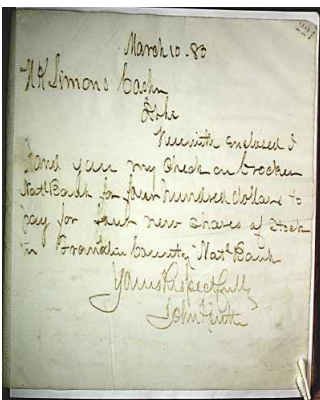 221
March 10 - 83
H K Simons Cashr
Herewith enclosed I
hand you my check on Crocker
Natl Bank for four hundred dollars to
pay for four new shares of stock
in Franklin County Natl Bank
Yours Respectfully
John Keith